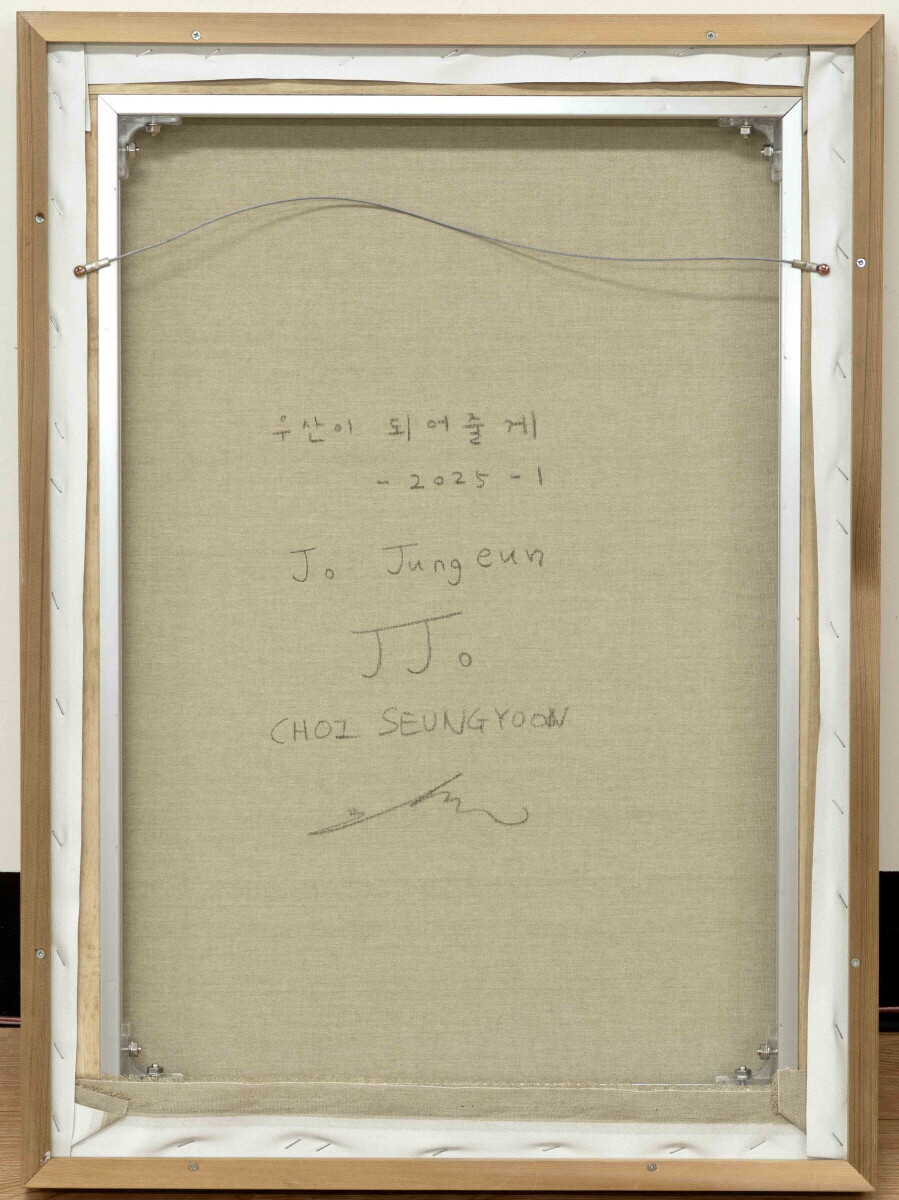 우산이 되어줄게
- 2025 - 1
Jo Jungeun
JJo
CHOI SEUNGYOON